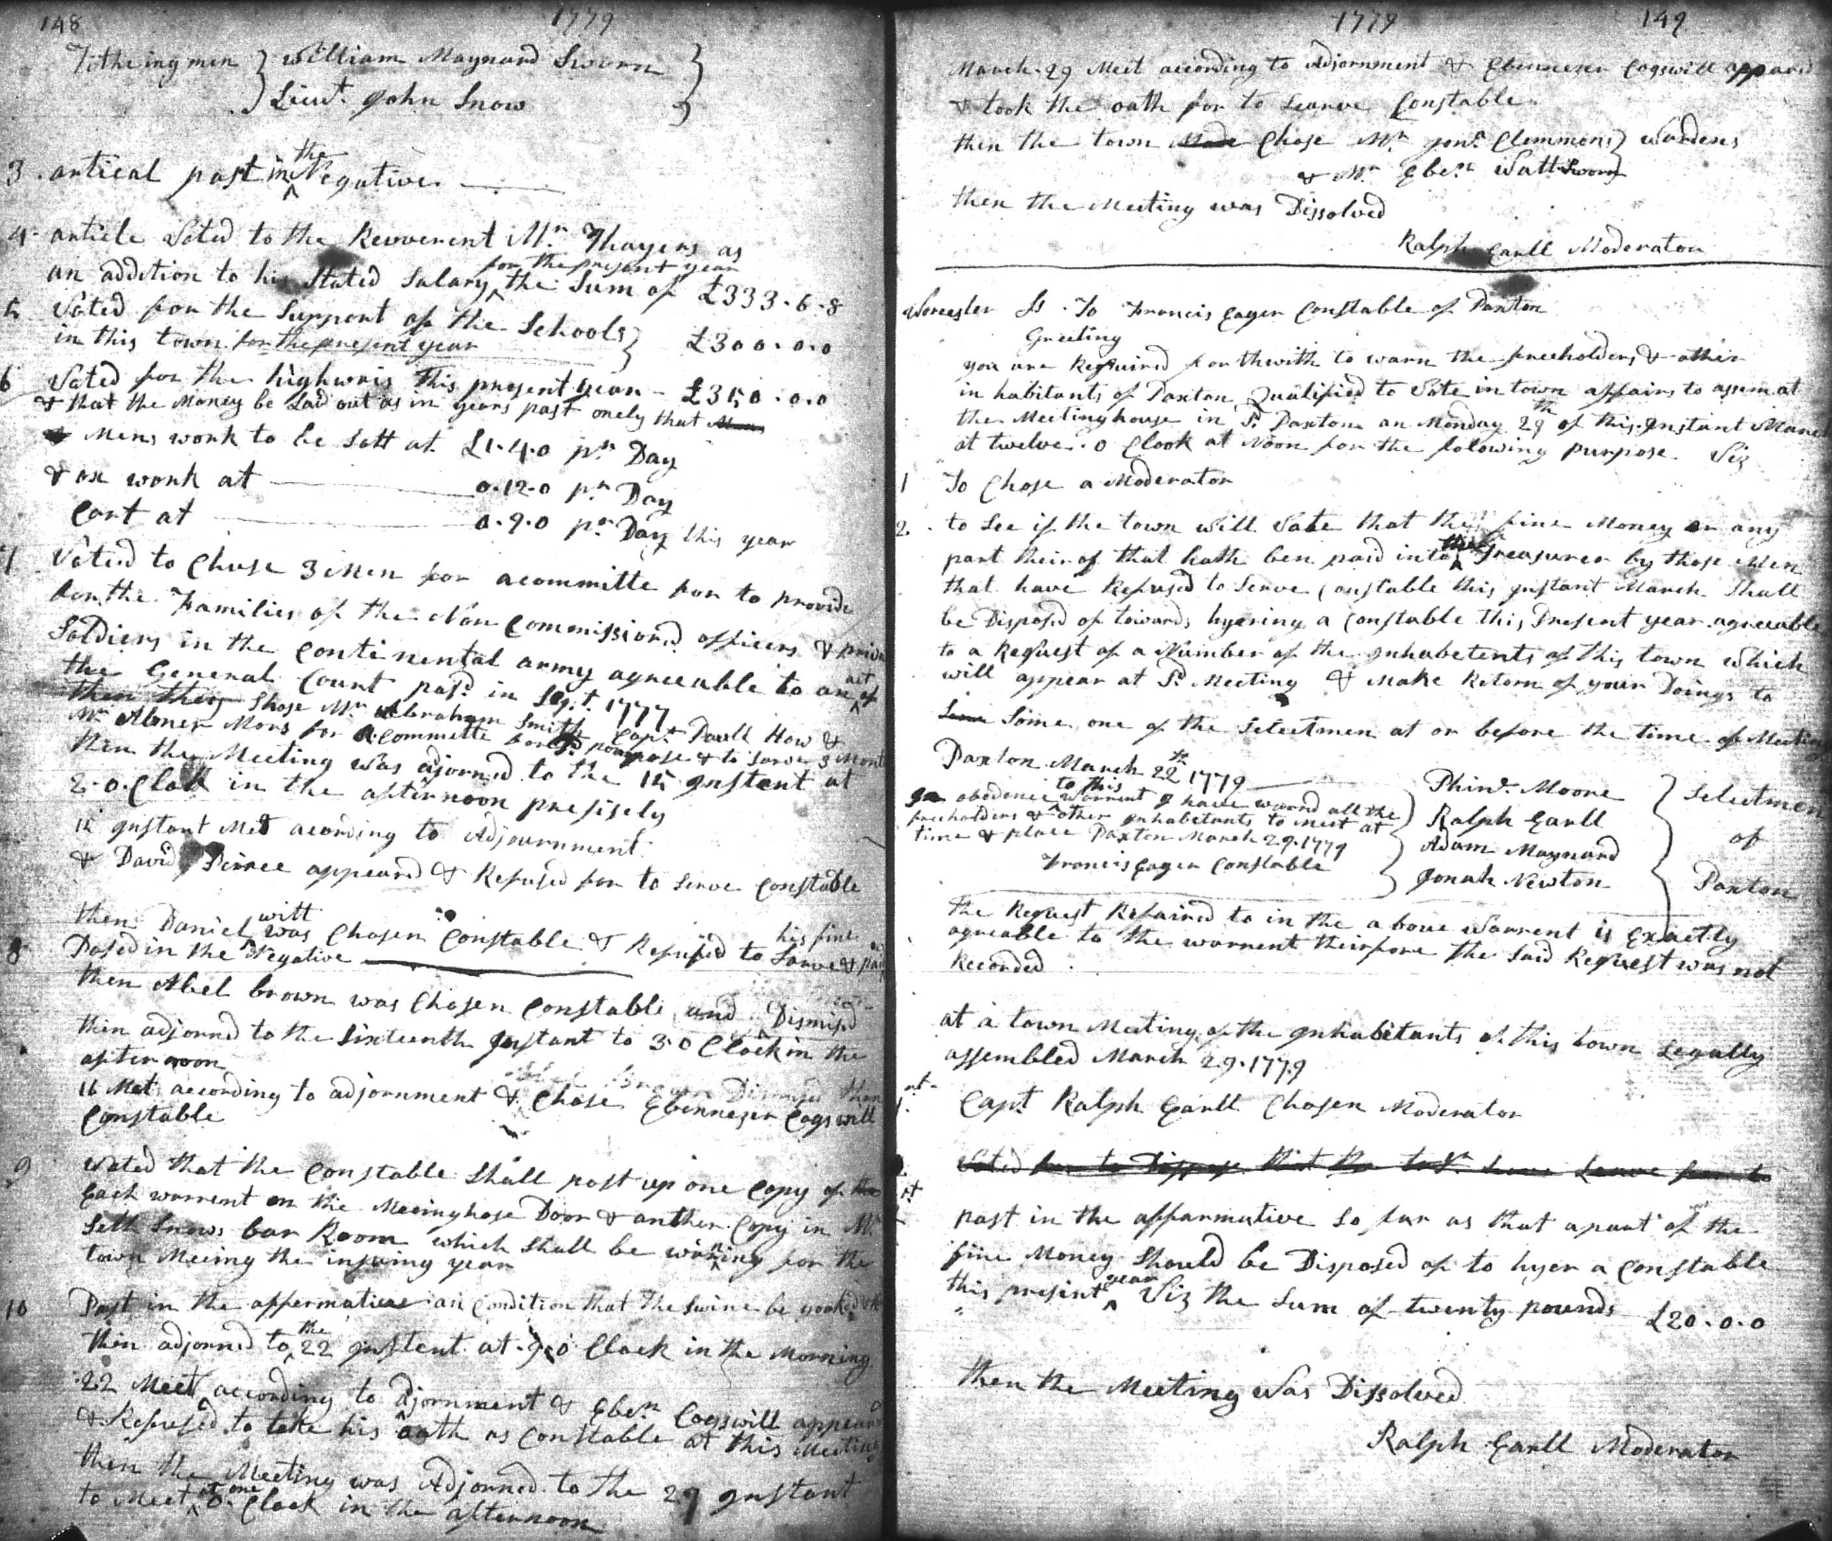 148 1779
Titheingmen } William Maynard Sworn }
} Lieut. John Snow
3. artical past in the Negative.
4. article Voted to the Revverent Mr. Thayers as
an addition to his Stated Salary for the present year the Sum of £333.6.8
5 Voted for the Support of the Schools }
in this town for the present year } £300.0.0
6 Voted for the highwais This present year - £350.0.0
& that the Money be Laid out as in years past onely that
Mens work to be Sett at £1.4.0 pr. Day
& ox work at 0.12.0 pr Day
Cart at 0.9.0 pr Day this year
7 Voted to Chuse 3 men for acommitte for to provide
for the Families of the Non Commissiond officers &
Soldiers in the Continental army agreeable to an act of
the General Court pasd in Sept. 1777
then they Chose Mr. Abraham Smith Capt Paull How &
Mr Abner Mors for a Committe for sd. pourpose & to Sarve 3 Mont
then the Meeting was ajornd to the 15 Instent at
2.0.Clok in the afternoon presisely
15 Instant Met acording to Adjournment
& David Peirce appeard & Refused for to Serve Constable
then Daniel witt was Chosen Constable & Refused to Sarve & his fine
8 Pased in the Negative
then Abel brown was Chosen Constable and Dismised
then adjornd to the Sixteenth Instant to 3.0 Clock in the
afternoon
16 Met according to adjornment & Chose Ebennezer Cogswill
Constable
9 Voted that the Constable Shall post up one Copy of the
Each warrent on the Meeinghose Door & anther Copy in Mr
Seth Snows bar Room which Shall be warning for the
town Meeing the insuing year
10 Past in the affermative on Condition that The Swine be yoaked
then adjornd to the 22 Instent at 9.0 Clock in the Morning
22 Meet according to Ajornment & Eben Cogswill appeard
& Refused to take his oath as Constable at this Meeting
then the Meeting was Adjornd to the 29 Instant
to Meet at one Clock in the afternoon
1779 149
March 29 Meet according to Adjornment & Ebennezer Cogswill appeard
& took the oath for to Searve Constable
then the town Made Chose Mr. Jonn. Clemmons } Wardens
& Mr Eben. Watt Sworn }
then the Meeting was Dissolved
Ralph Earll Moderator
Worcester Ss. To Francis Eager Constable of Paxton
Greeting
you are Required forthwith to warn the freeholders & other
inhabitants of Paxton Qualified to Vote in town affairs to assem at
the Meetinghouse in Sd. Paxton on Monday 29th of this Instant March
at twelve.o Clook at Noon for the folowing purpose Viz
1 To Chose a Moderator
2. to See if the town will Vate that the fine Money or any
part their of that hath ben paid into the Treasurer by those Men
that have Refused to Serve Constable this Instant March Shall
be Disposed of towards hyering a Constable this Present year agreeable
to a Request of a Number of the Inhabetents of this town which
will appear at Sd Meeting & Make Retorn of your Doings to
Some Some one of the Selectmen at or before the time of Meeting
Paxton March 22th 1779
Phins. Moore } Selectmen
Ralph Earll
Adam Maynard } of
Jonah Newton } Paxton
In obedence to this Warrent I have warnd all the
freeholders & other Inhabitants to Meet at
time & place Paxton March 29.1779
Francis Eager Constable
the Request Refaired to in the above Warrent is Exactly
agreable to the warrent theirfore the Said Request was not
Recorded
at a town Meeting of the Inhabitants of this town Legally
assembled March 29.1779
Capt Ralph Earll Chosen Moderator
past in the affarmative So far as that apart of the
fine Money Should be Disposed of to hyer a Constable
this present year Viz the Sum of twenty pounds £20.0.0
then the Meeting was Dissolved
Ralph Earll Moderator